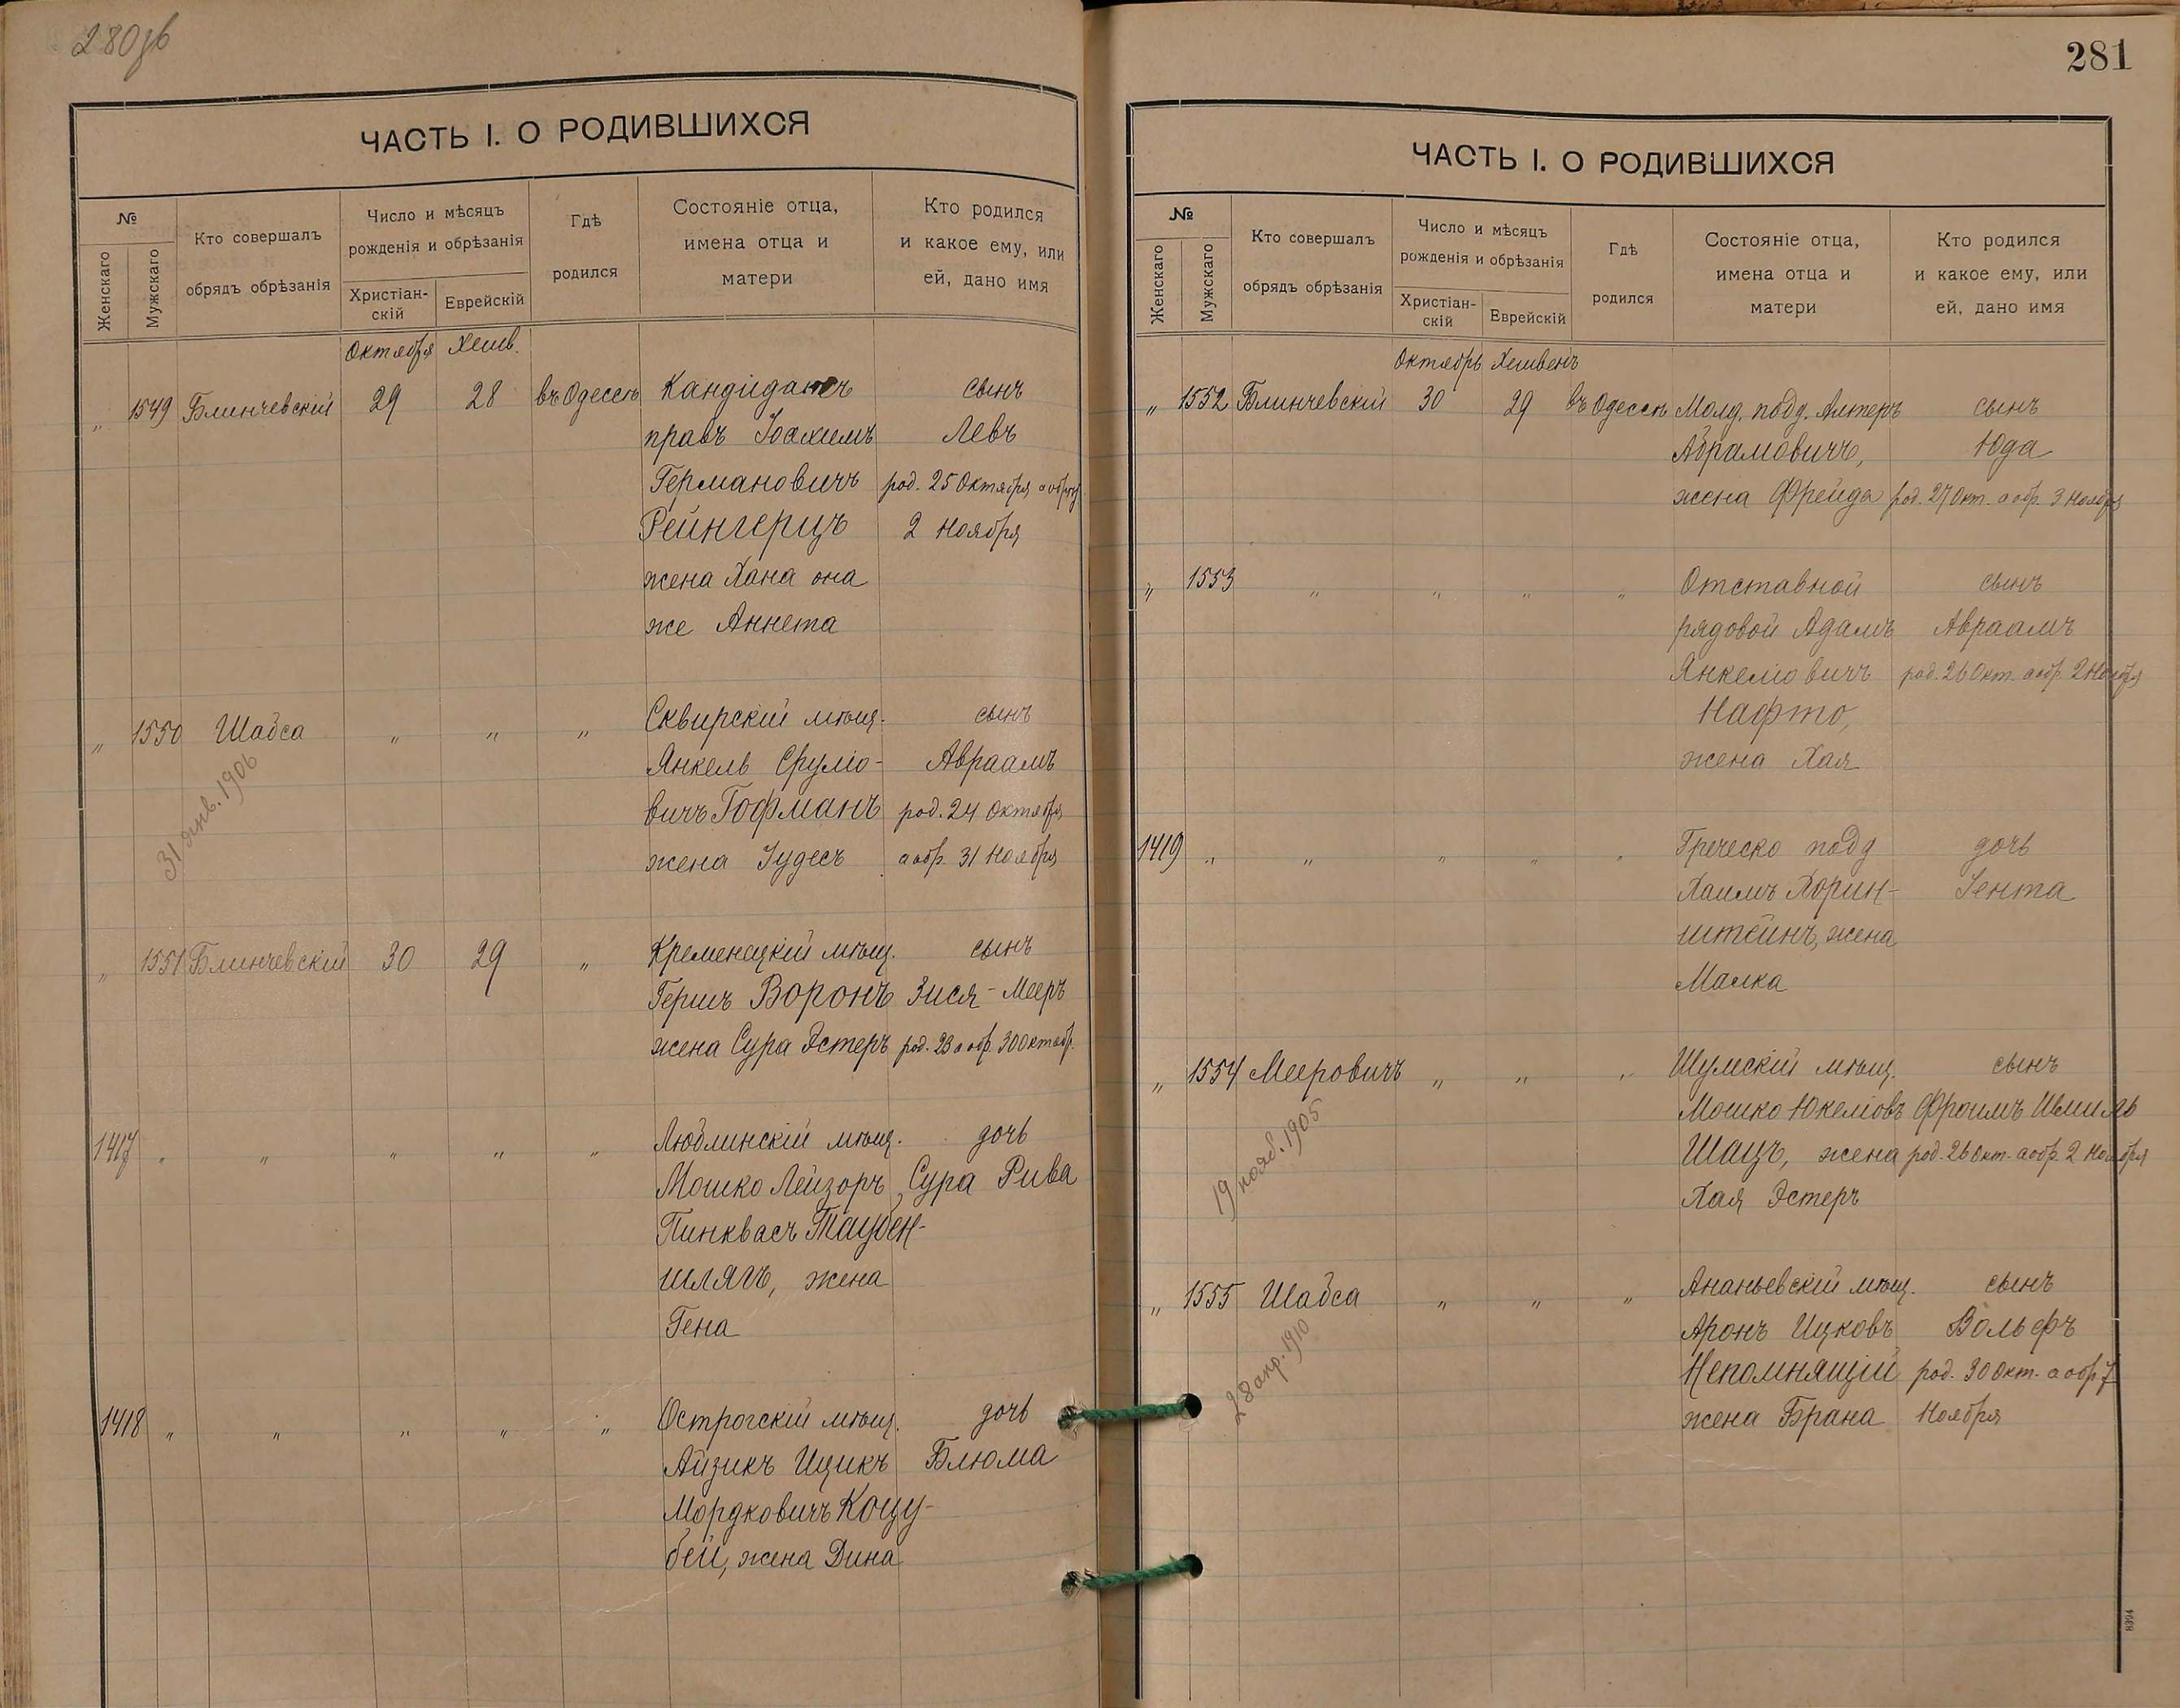 280 зв
ЧАСТЬ I. О РОДИВШИХСЯ
№
Женскаго
Мужскаго
Кто совершалъ
обрядъ обрѣзанія
Число и мѣсяцъ
рожденія и обрѣзанія
Христіан-
скій
Еврейскій
Гдѣ
родился
Состояніе отца,
имена отца и
матери
Кто родился
и какое ему, или
ей, дано имя
Октября Хешв.
„ 1549 Блинчевскій 29 28 въ Одессѣ Кандидатъ сынъ
правъ Іоахимъ Левъ
Германовичъ род. 25 Октября а обр.
Рейнгерцъ 2 Ноября
жена Хана она
же Аннета
„ 1550 Шабса „ „ „ Сквирскій мѣщ. сынъ
Янкель Сруліо- Авраамъ
вичъ Гофманъ род. 24 Октября
жена Іудесъ а обр. 31 Ноября
31 янв. 1906
„ 1551 Блинчевскій 30 29 „ Кременецкій мѣщ. сынъ
Гершъ Воронъ Зися-Мееръ
жена Сура Эстеръ род. 23 а обр. 30 Октябр.
1417 „ „ „ „ „ Люблинскій мѣщ. дочь
Мошко Лейзоръ Сура Рива
Пинквасъ Таубен-
шлягъ, жена
Гена
1418 „ „ „ „ „ Острогскій мѣщ. дочь
Айзикъ Ицикъ Блюма
Мордковичъ Коцу-
бей, жена Дина
281
ЧАСТЬ I. О РОДИВШИХСЯ
№
Женскаго
Мужскаго
Кто совершалъ
обрядъ обрѣзанія
Число и мѣсяцъ
рожденія и обрѣзанія
Христіан-
скій
Еврейскій
Гдѣ
родился
Состояніе отца,
имена отца и
матери
Кто родился
и какое ему, или
ей, дано имя
Октябрь Хешвенъ
„ 1552 Блинчевскій 30 29 въ Одессѣ Молд. подд. Алтеръ сынъ
Абрамовичъ, Юда
жена Фрейда род. 27 Окт. а обр. 3 Ноября
„ 1553 „ „ „ „ Отставной сынъ
рядовой Адамъ Авраамъ
Янкеліовичъ род. 26 Окт. а обр. 2 Ноября
Нафто,
жена Хая
1419 „ „ „ „ „ Греческо подд дочь
Хаимъ Хорин- Іента
штейнъ, жена
Малка
„ 1554 Мееровичъ „ „ „ Шумскій мѣщ. сынъ
Мошко Юкеліовъ Фроимъ Шмиль
Шацъ, жена род. 26 Окт. а обр. 2 Ноября
Хая Эстеръ
19 нояб. 1905
„ 1555 Шабса „ „ „ Ананьевскій мѣщ. сынъ
Аронъ Ицковъ Вольфъ
Непомнящій род. 30 Окт. а обр 7
жена Брана Ноября
28 апр. 1910
8394